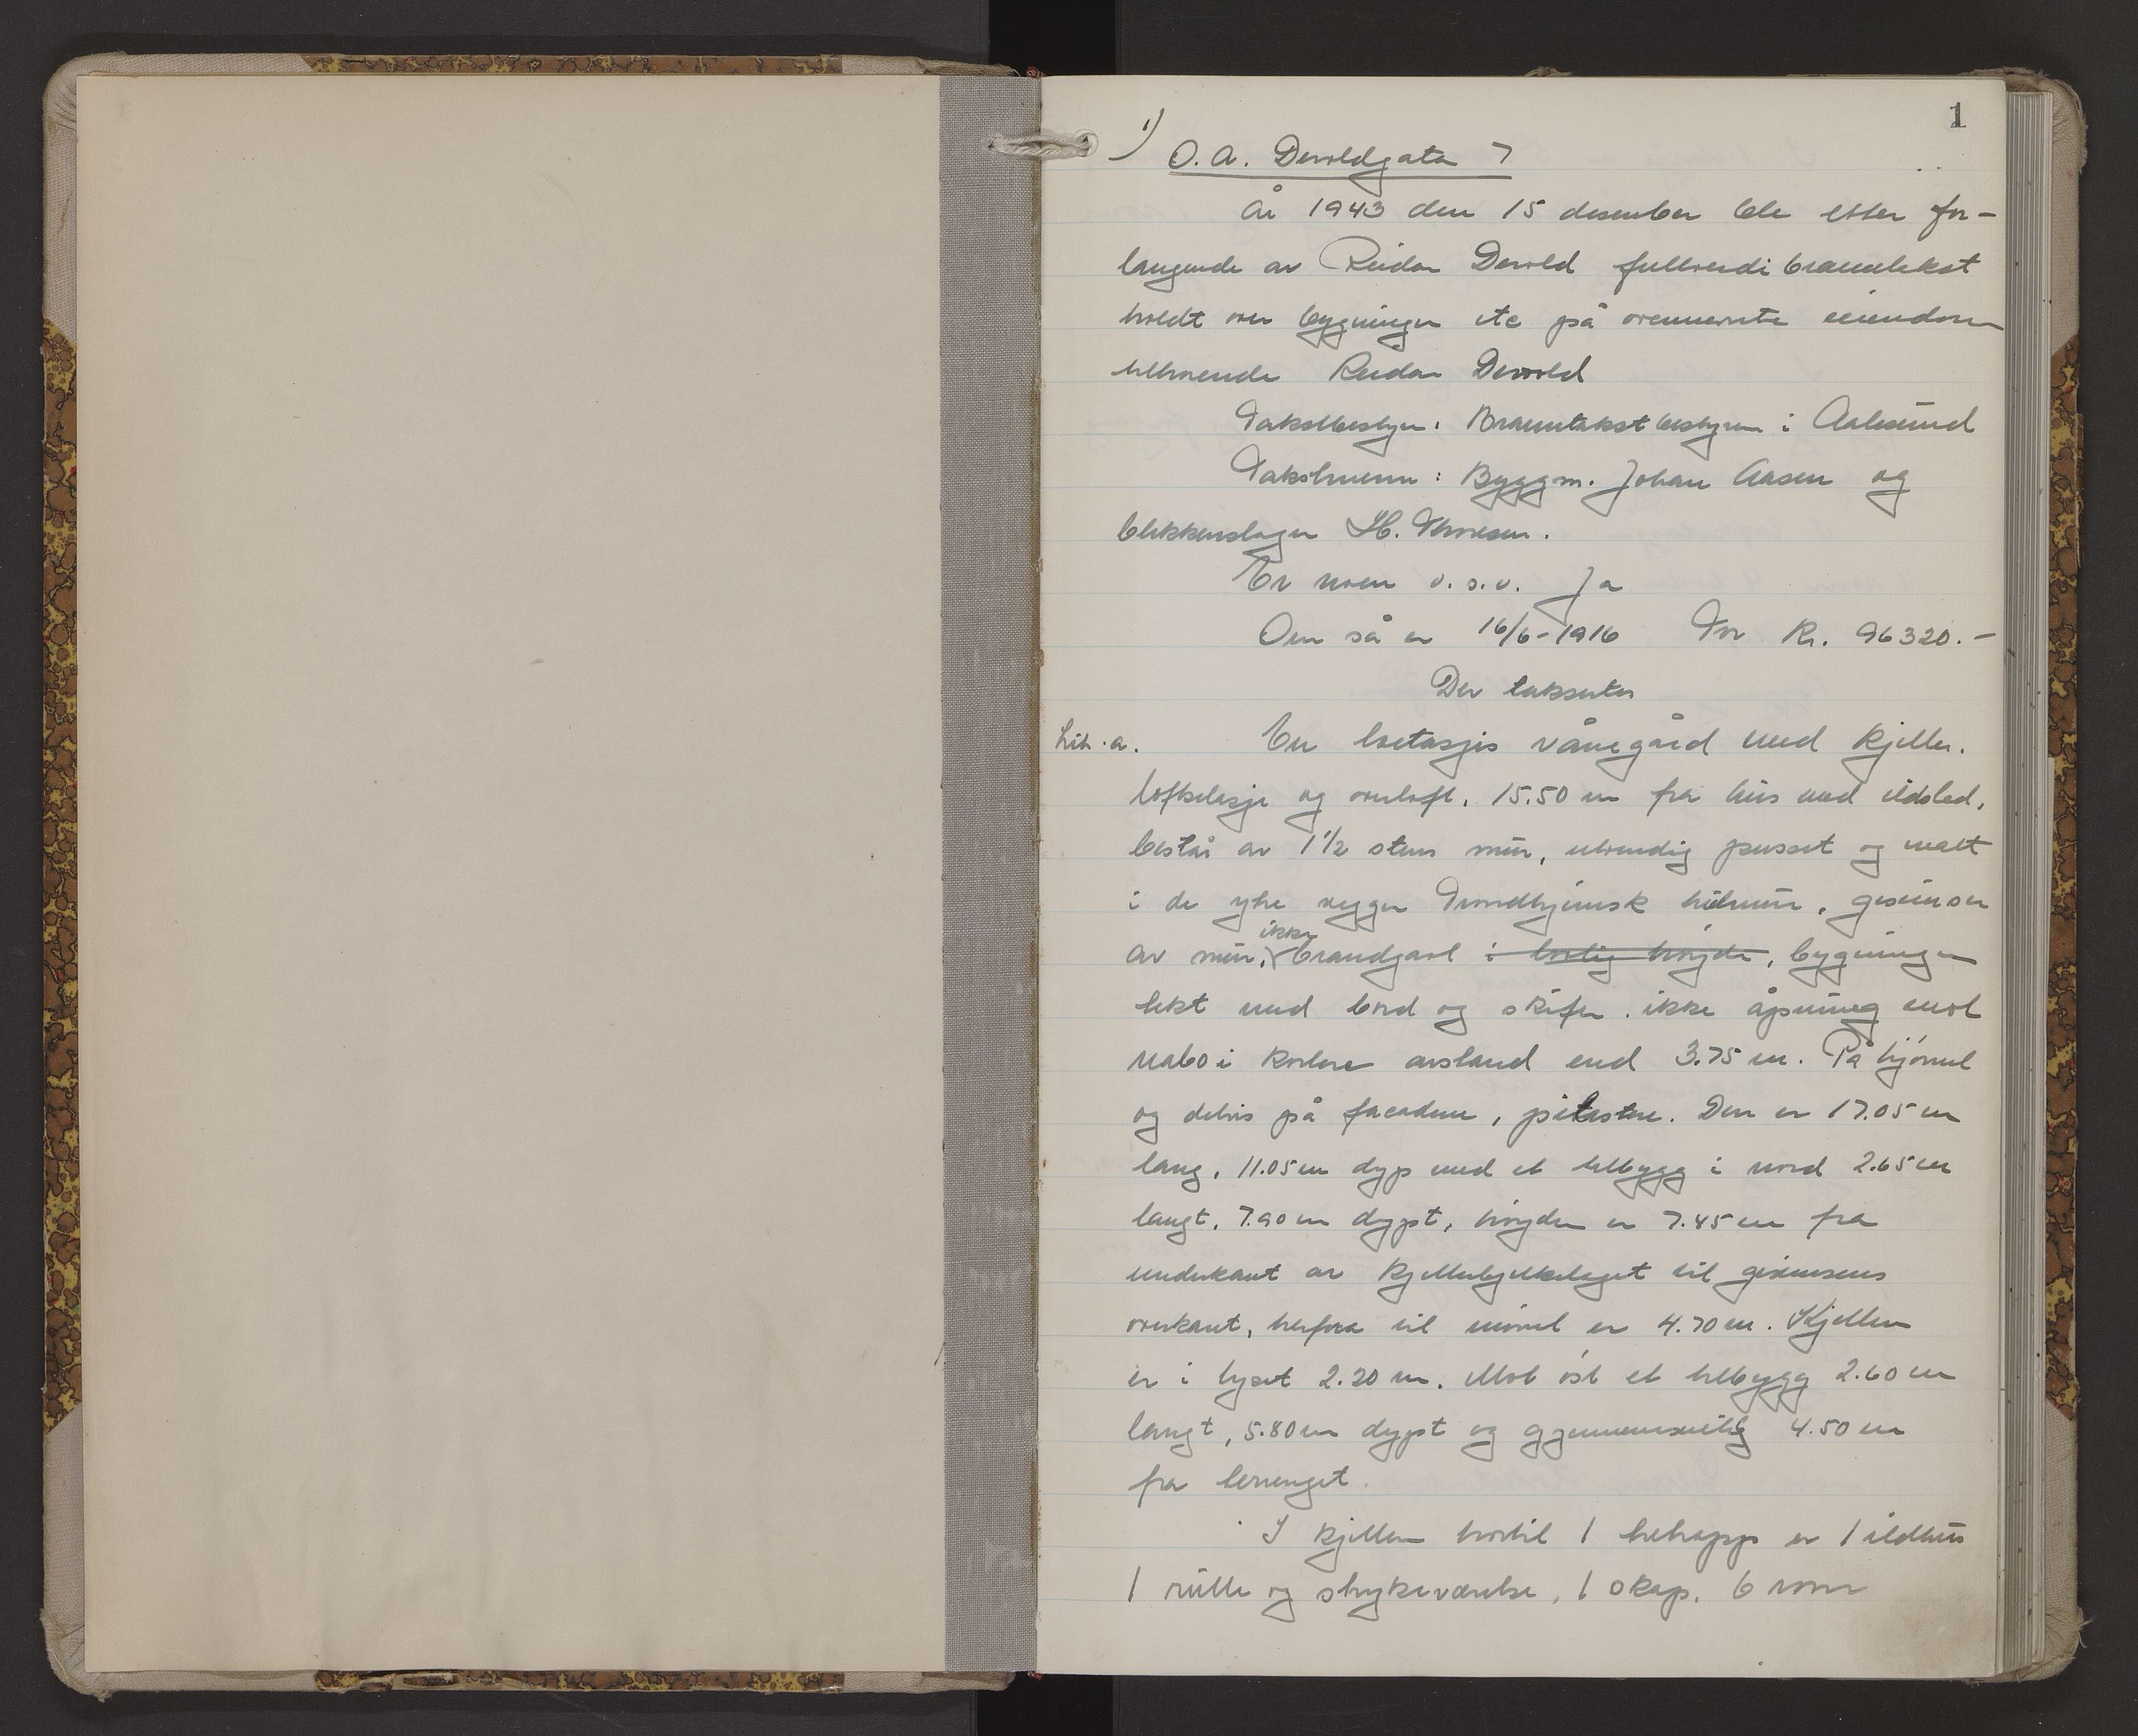 1
1) O. A. Devoldgata 7
År 1943 den 15 desember ble etter for-
langende av Reidar Devold fullverdi branntakst
holdt over bygninger etc på ovennevnte eiendom
tilhørende Reidar Devold
Takstbestyr: Branntakstbestyrer i Aalesund
Takstmenn: Byggm. Johan Aasen og
blikkenslager H. Thoresen.
Er noen o.s.v. Ja
Om så er 16/6-1916 For Kr. 96320.-
Der taksertes
Litr. a. En toetasjes våningård med kjeller.
loftsetasje og overloft, 15.50 m fra hus med ildsted,
består av 1 1/2 stens mur, utvendig pusset og malt
i de ytre vegger Trondhjemsk hulmur, gesimser
av mur, ikke brandgavl i lovlig høyde, bygningen
tekt med bord og skifer. ikke åpning mot
nabo i kortere avstand end 3.75 m. På hjørnet
og delvis på facadene, pilastre. Den er 17.05 m
lang, 11.05 m dyp med et tilbygg i nord 2.65 m
langt, 7.90 m dypt, høyden er 7.45 m fra
underkant av kjellerbjelkelaget til gesimsens
overkant, herfra til mønet er 4.70 m. Kjelleren
er i lyset 2.20 m. Mot øst et tilbygg 2.60 m
langt, 5.80 m dypt og gjennemsnitlig 4.50 m
fra terrenget.
I kjelleren hvortil 1 betrapp er 1 ildhus
1 rulle og strykeværelse, 1 skap, 6 rom